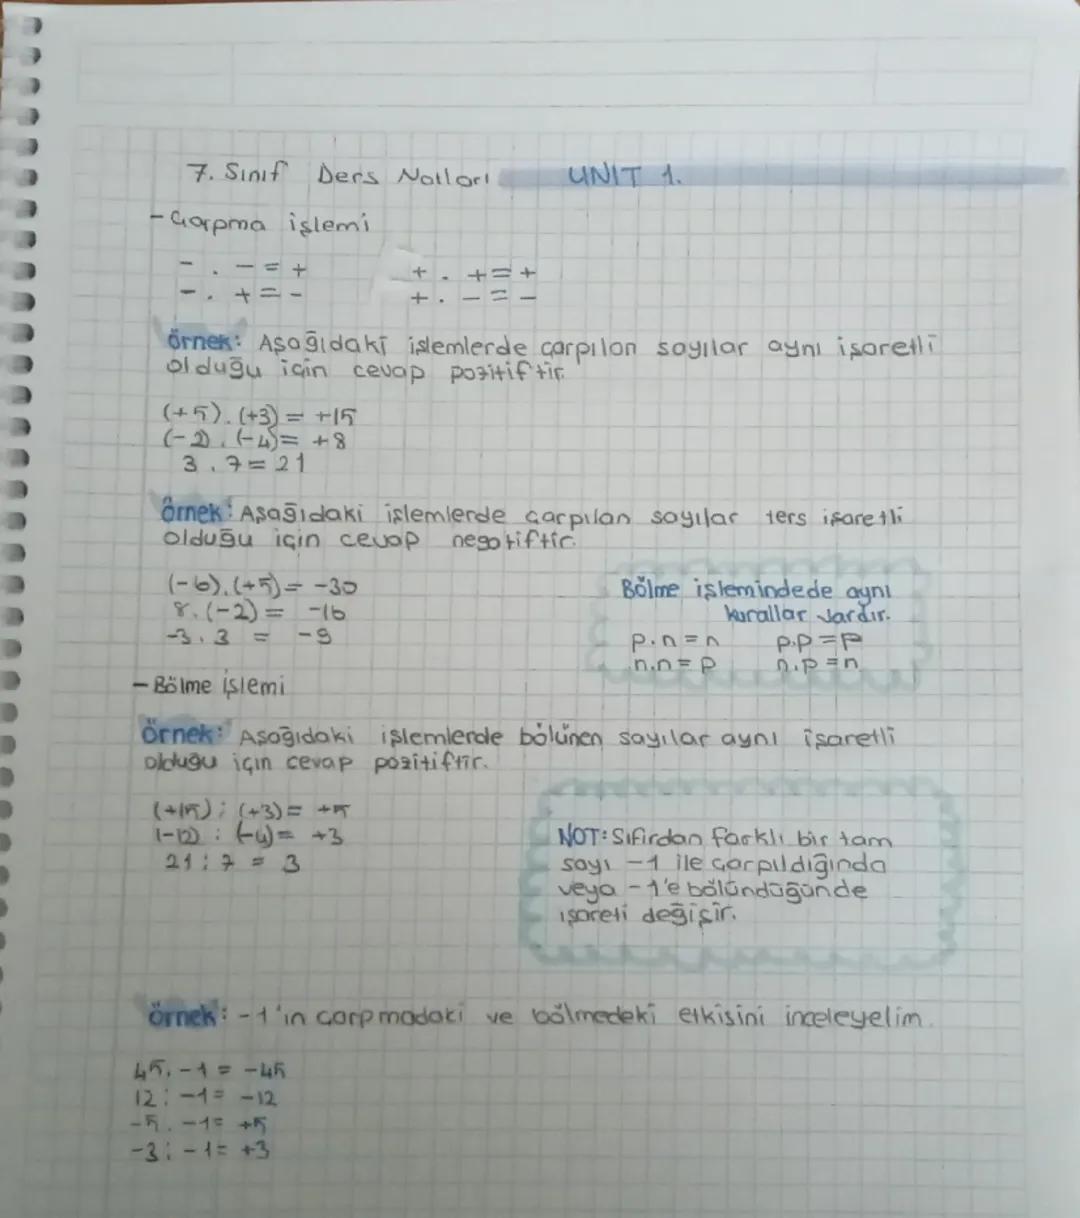 7. Sınıf Ders Notları UNIT 1.
- Çarpma işlemi
- . - = + + . + = +
- . + = - + . - = -
örnek: Aşağıdaki işlemlerde çarpılan sayılar aynı işaretli
olduğu için cevap pozitiftir.
(+5).(+3) = +15
(-2).(-4) = +8
3.7 = 21
örnek: Aşağıdaki işlemlerde çarpılan sayılar ters işaretli
olduğu için cevap negatiftir.
(-6).(+5) = -30
8.(-2) = -16
-3.3 = -9
Bölme işlemindede aynı
kurallar vardır.
p.n = n p.p = p
n.n = p n.p = n
- Bölme işlemi
örnek: Aşağıdaki işlemlerde bölünen sayılar aynı işaretli
olduğu için cevap pozitiftir.
(+15) : (+3) = +5
(-12) : (-4) = +3
21 : 7 = 3
NOT: Sıfırdan farklı bir tam
sayı -1 ile çarpıldığında
veya -1'e bölündüğünde
işareti değişir.
örnek: -1'in çarpmadaki ve bölmedeki etkisini inceleyelim.
45.-1 = -45
12 : -1 = -12
-5.-1 = +5
-3 : -1 = +3